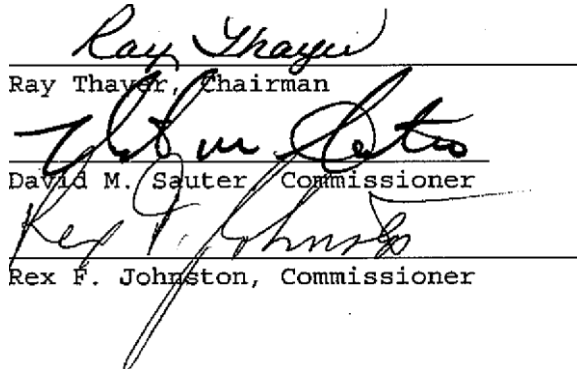 Ray Thayer
Ray Thayer, Chairman
David M. Sauter, Commissioner
Rex F. Johnston
Rex F. Johnston, Commissioner